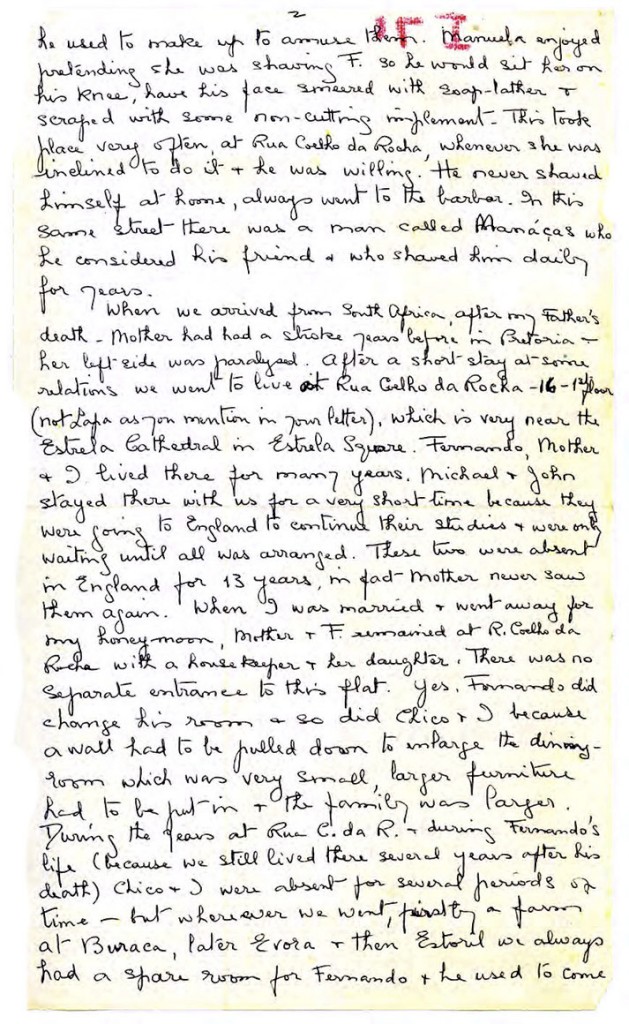 2
IFI
he used to make up to amuse them. Manuela enjoyed
pretending she was shaving F. so he would sit her on
his knee, have his face smeered with soap-lather &
scraped with some non-cutting implement - This took
place very often, at Rua Coelho da Rocha, whenever she was
inclined to do it & he was willing. He never shaved
himself at home, always went to the barber. In this
same street there was a man called Manáças who
he considered his friend & who shaved him daily
for years.
When we arrived from South Africa, after my Father's
death - Mother had had a stroke years before in Pretoria -
her left side was paralysed. After a short stay at some
relations we went to live at Rua Coelho da Rocha - 16 - 1st floor
(not Lapa as you mention in your letter), which is very near the
Estrela Cathedral in Estrela Square. Fernando, Mother
& I lived there for many years. Michael & John
stayed there with us for a very short time because they
were going to England to continue their studies & were only
waiting until all was arranged. These two were absent
in England for 13 years, in fact Mother never saw
them again. When I was married & went away for
my honey-moon, Mother & F. remained at R. Coelho da
Rocha with a housekeeper & her daughter. There was no
separate entrance to this flat. Yes, Fernando did
change his room & so did Chico & I because
a wall had to be pulled down to enlarge the dining-
room which was very small, larger furniture
had to be put in & the family was larger.
During the years at Rua C. da R. & during Fernando's
life (because we still lived there several years after his
death) Chico & I were absent for several periods of
time - but wherever we went, firstly a farm
at Buraca, later Evora & then Estoril we always
had a spare room for Fernando & he used to come